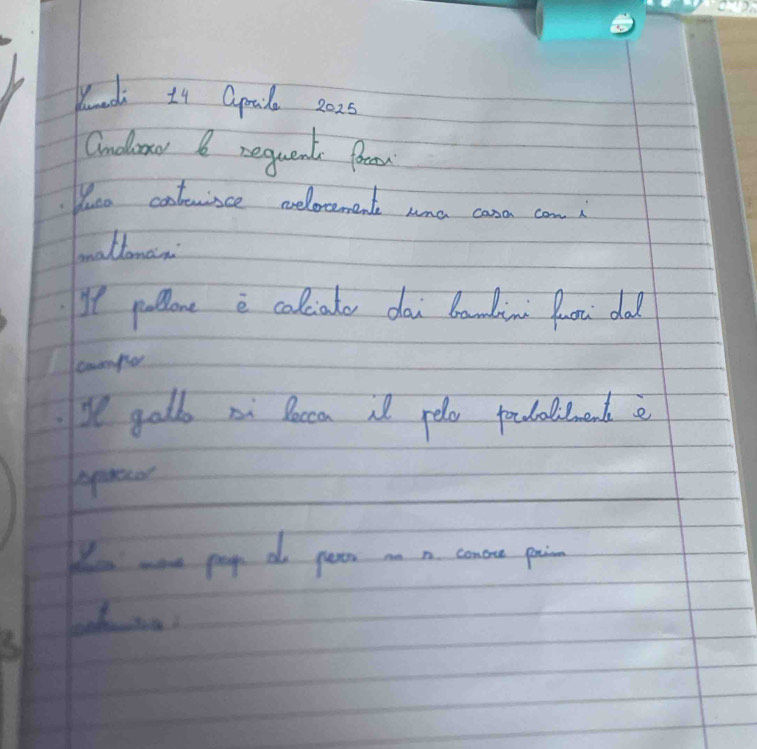 Lunedì 14 Aprile 2025
Analizza le seguenti frasi
· Luca costruisce velocemente una casa con i
mattoncini
· Il pallone è calciato dai bambini fuori dal
campo
· Il gatto si lecca il pelo probabilmente è
sporco
nome prop. di pers.